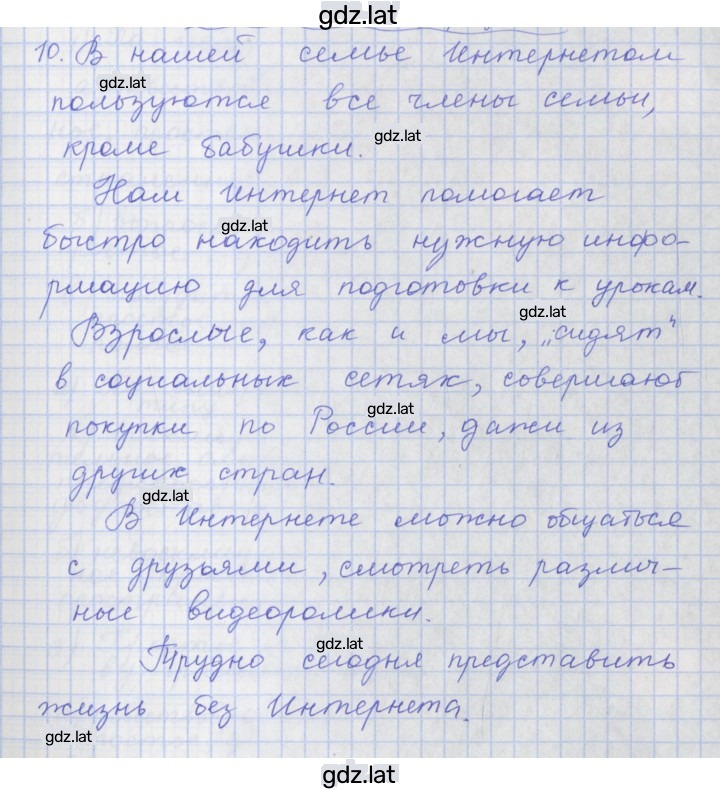 gdz.lat
10. В нашей семье Интернетом
gdz.lat
пользуются все члены семьи,
gdz.lat
кроме бабушки.
Нам Интернет помогает
gdz.lat
быстро находить нужную инфо-
рмацию для подготовки к урокам.
gdz.lat
Взрослые, как и мы, „сидят“
в социальных сетях, совершают
gdz.lat
покупки по России, дажи из
других стран.
gdz.lat
В Интернете можно общаться
с друзьями, смотреть различ-
ные видеоролики.
gdz.lat
Трудно сегодня представить
жизнь без Интернета.
gdz.lat
gdz.lat